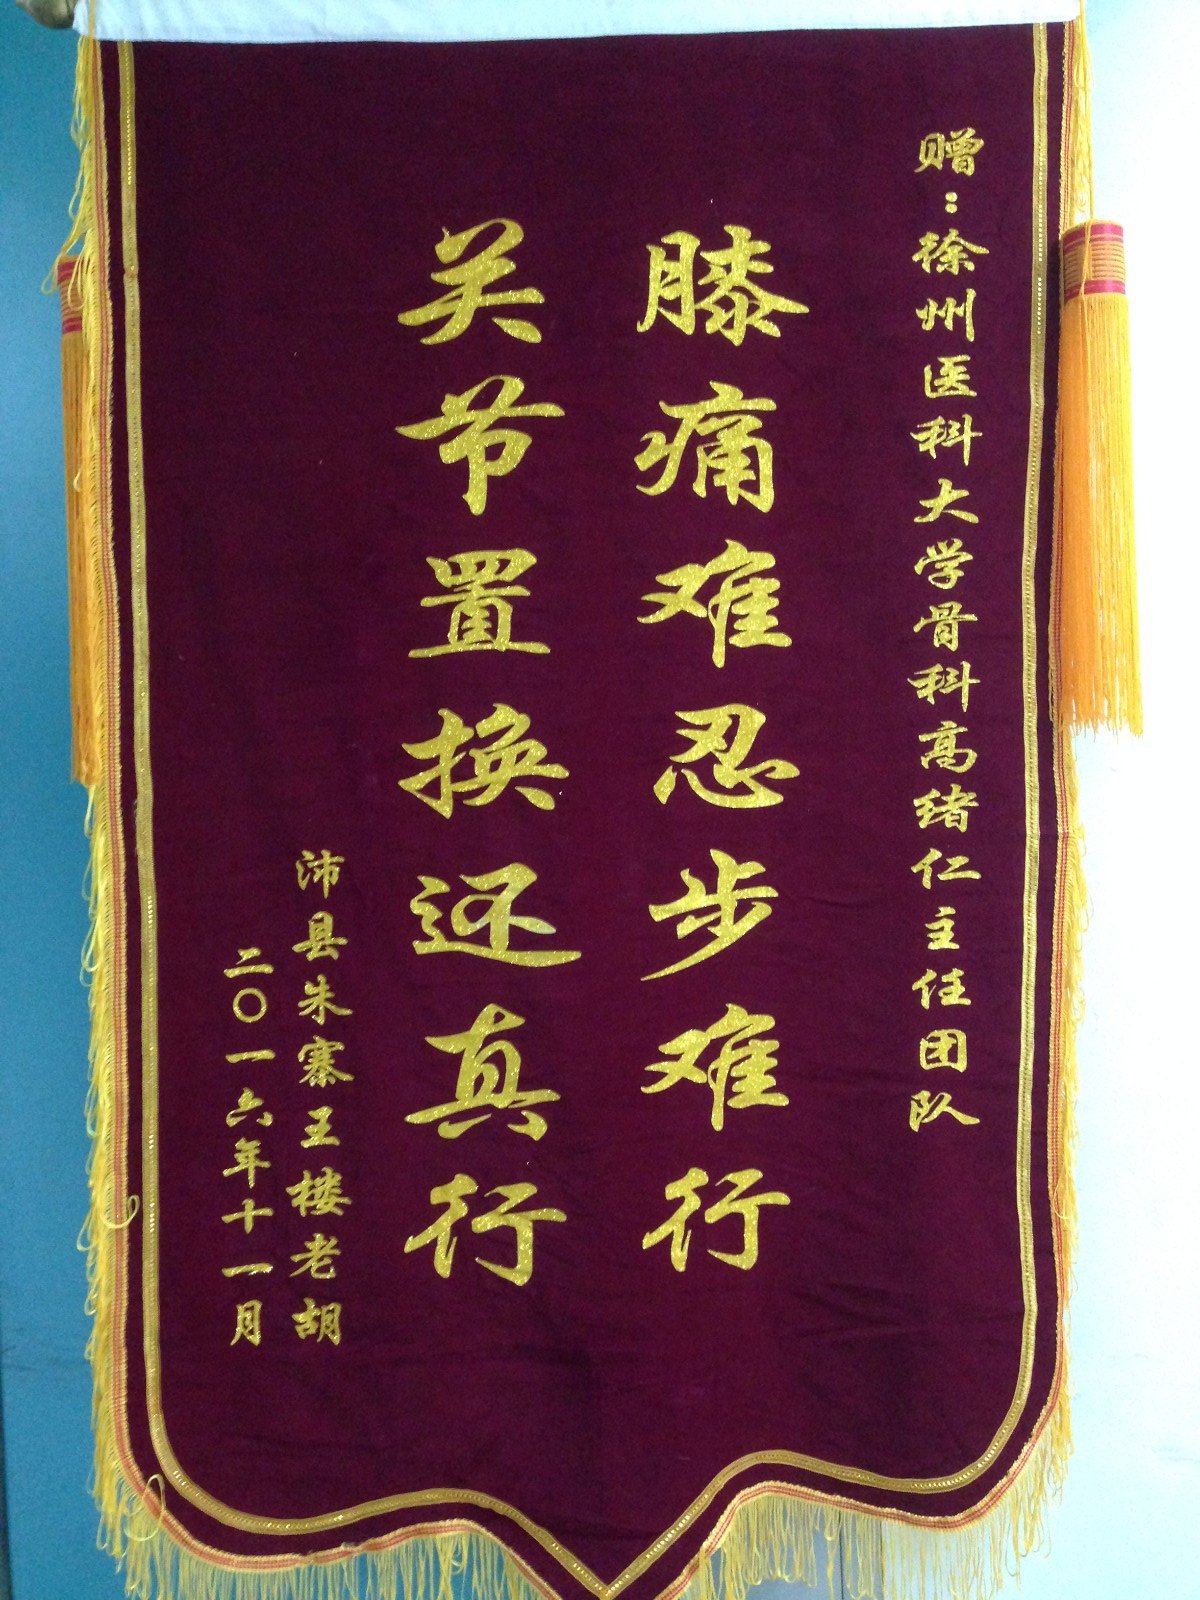 赠：徐州医科大学骨科高绪仁主任团队
膝痛难忍步难行
关节置换还真行
沛县朱寨王楼老胡
二〇一六年十一月